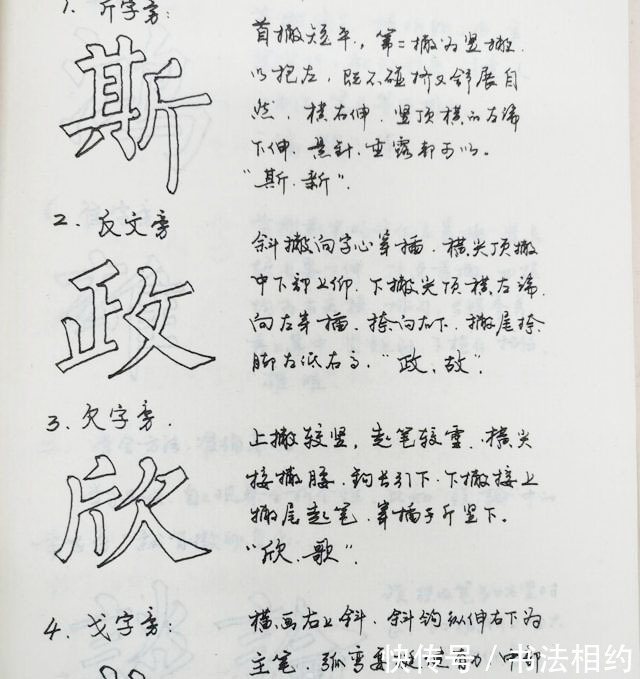 1. 斤字旁:
斯
首撇短平，第二撇为竖撇
以抱左，既不碰挤又舒展自
然，横右伸，竖顶横的左端
下伸，悬针、垂露都可以。
“斯、新”.
2. 反文旁
政
斜撇向字心穿插，横尖顶撇
中下部上仰，下撇尖顶横左端
向左穿插，捺向右下，撇尾捺
脚左低右高，“政、故”.
3. 欠字旁.
欣
上撇较竖，起笔较重，横尖
接撇腰，钩长引下，下撇接上
撇尾起笔，穿插于斤竖下。
“欣、歌”.
4. 戈字旁:
横画右上斜，斜钩纵伸右下为
主笔，弧弯要挺
中部
快传号/书法相约